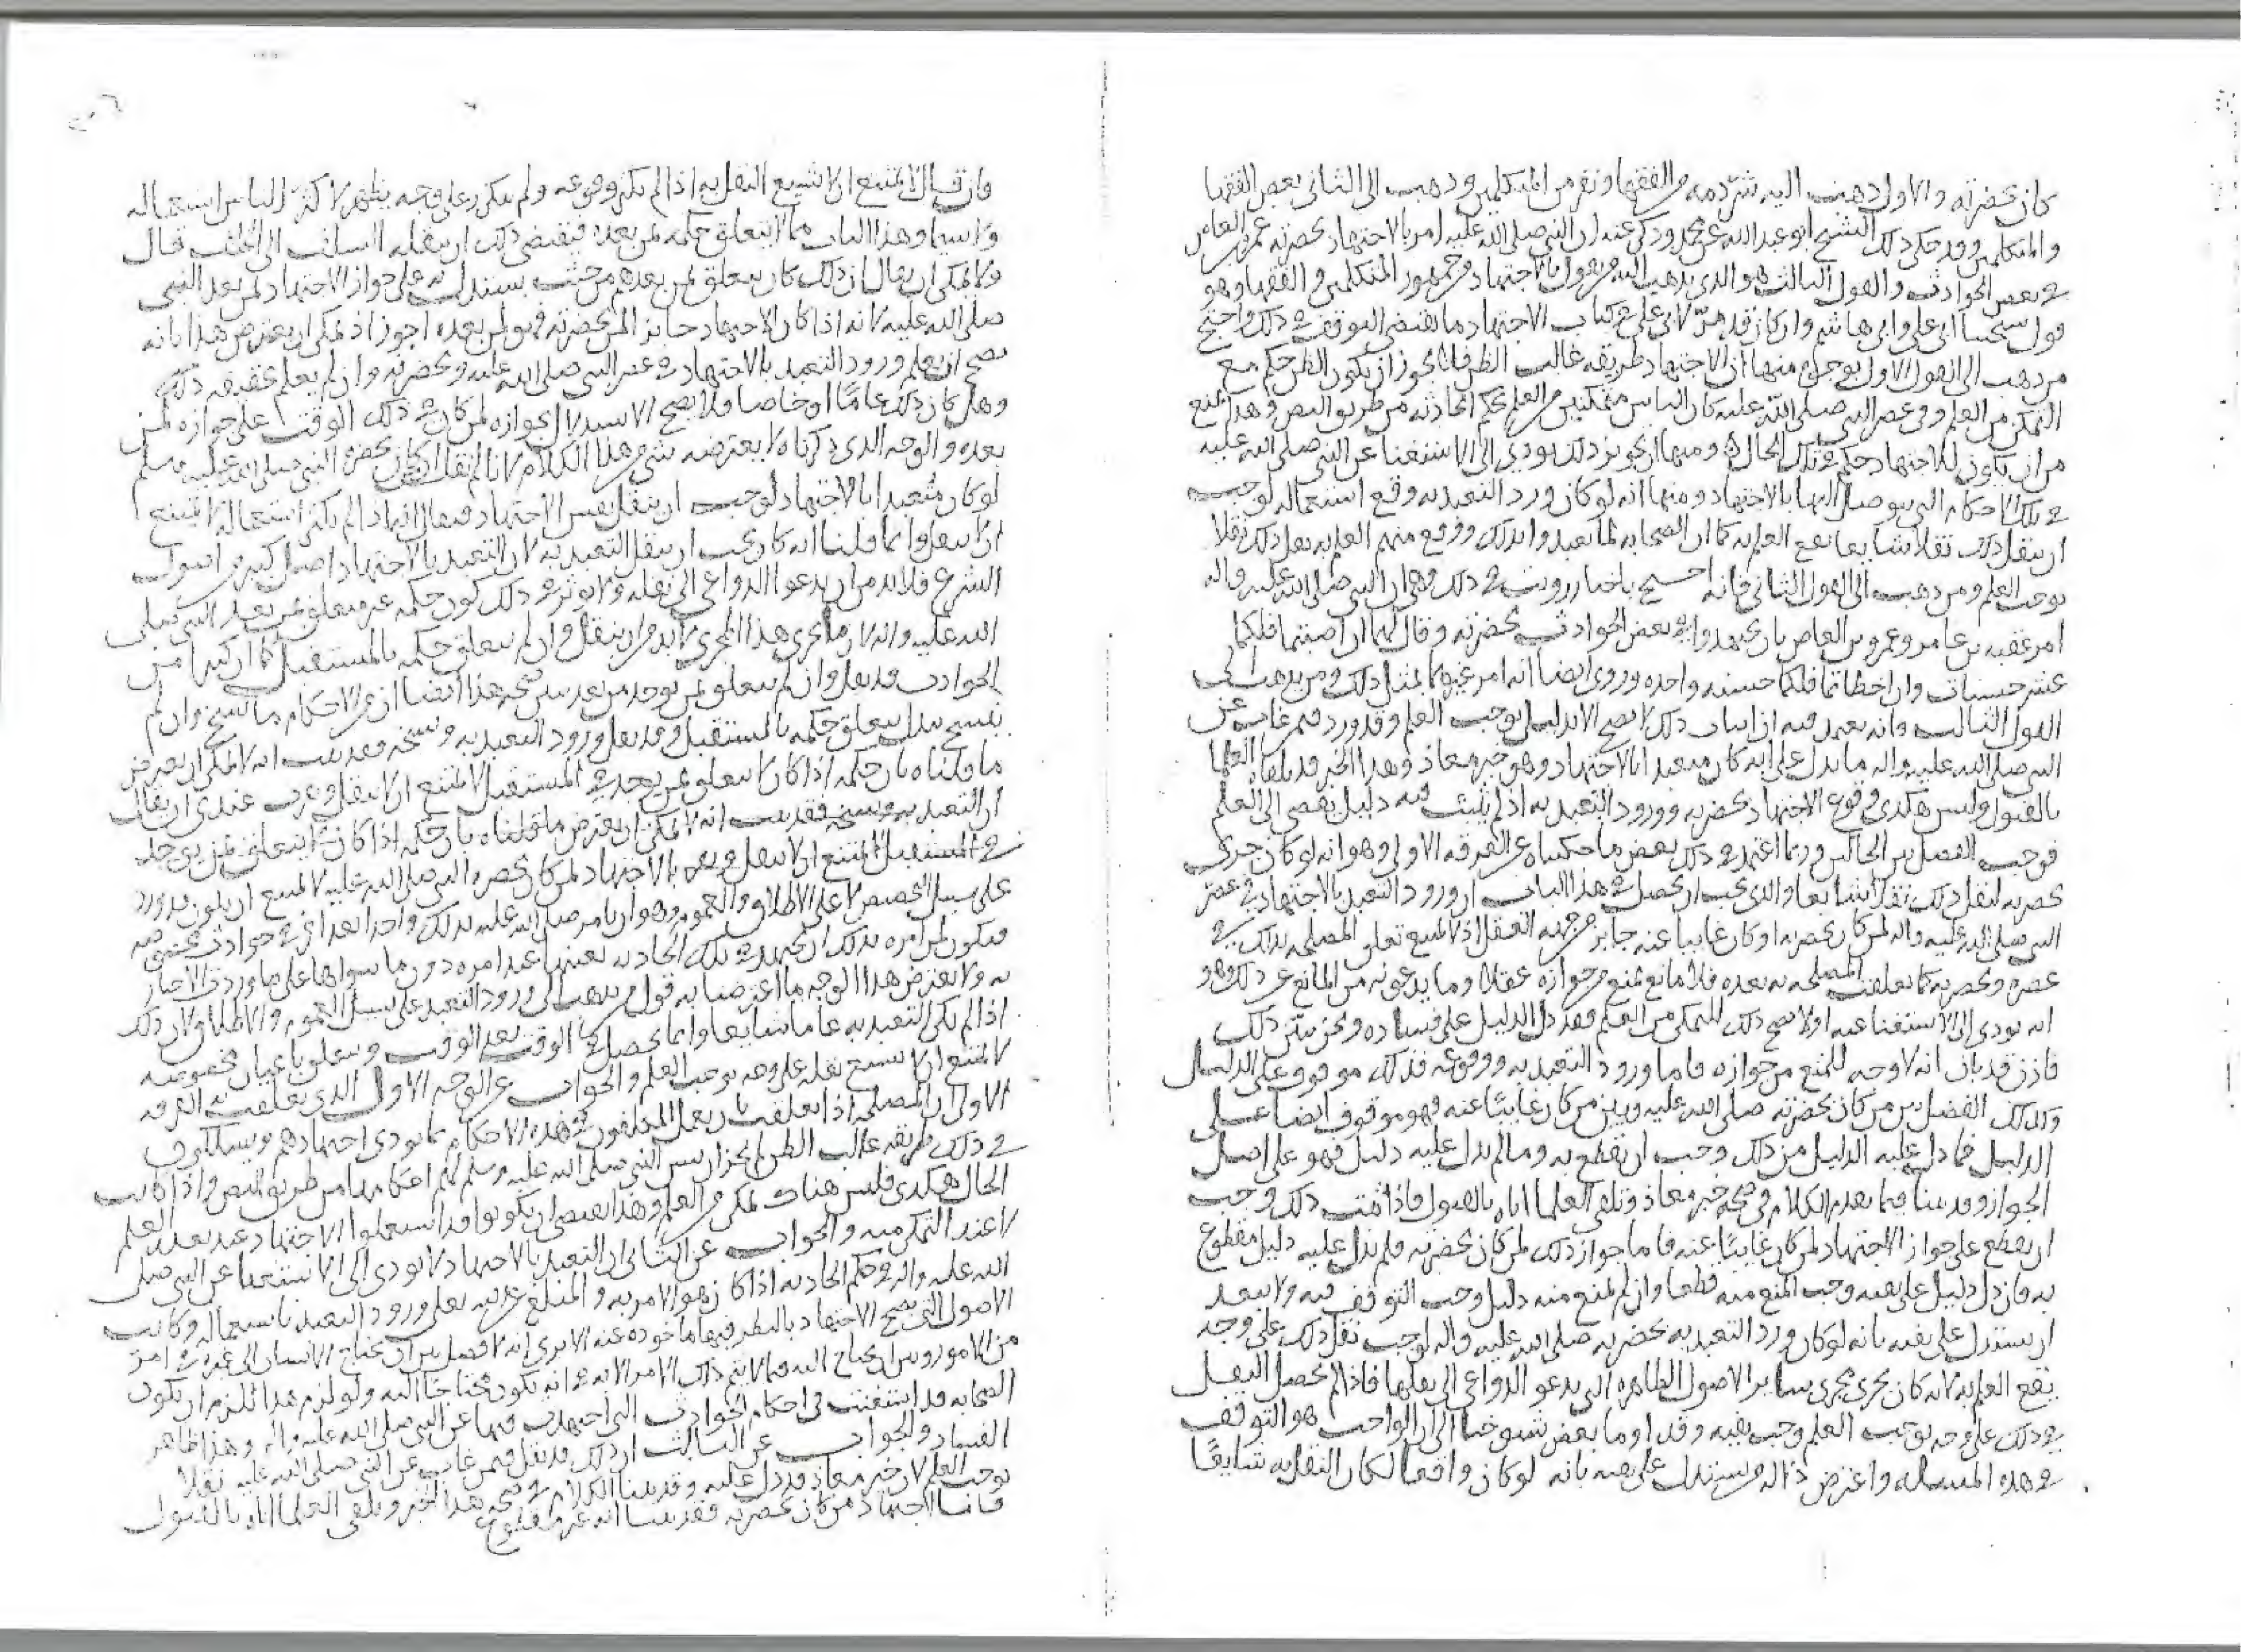 كان بحضرته والاول ذهب اليه شرذمه من الفقها ونفر من المتكلمين وذهب الى الثانى بعض الفقها
والمتكلمين وقد حكى ذلك الشيخ ابو عبد الله عن محمد وذكر عنه ان النبى صلى الله عليه امر بالاجتهاد بحضرته عمرو بن العاص
فى بعض الحوادث والقول الثالث هو الذى يذهب اليه من يقول بالاجتهاد من جمهور المتكلمين والفقها وهو
قول شيخنا ابى على وابى هاشم وان كان قد مر لابى على فى كتاب الاجتهاد ما يقتضى التوقف فى ذلك واحتج
من ذهب الى القول الاول بوجوه منها ان الاجتهاد طريقه غالب الظن فلا يجوز ان يكون الظن حكم مع
التمكن من العلم وفى عصر النبى صلى الله عليه كان الناس متمكنين من العلم بحكم الحادثه من طريق النص وهذا يمنع
من ان يكون للاجتهاد حكم فى تلك الحال ومنها ان تجويز ذلك يودى الى الاستغنا عن النبى صلى الله عليه
فى تلك الاحكام التى يتوصل اليها بالاجتهاد ومنها انه لو كان ورد التعبد به وقع استعماله لوجب
ان ينقل ذلك نقلا شايعا يقع العلم به كما ان الصحابه لما تعبدوا بذلك ووقع منهم العلم به نقل ذلك نقلا
يوجب العلم ومن ذهب الى القول الثانى فانه احتج باخبار رويت فى ذلك وهى ان النبى صلى الله عليه واله
امر عقبه بن عامر وعمرو بن العاص بان يجتهدوا فى بعض الحوادث بحضرته وقال لهما ان اصبتما فلكما
عشر حسنات وان اخطاتما فلكما حسنه واحده وروى ايضا انه امر غيرهما بمثل ذلك ومن يذهب الى
القول الثالث فانه يعتمد فيه ان اثبات ذلك لا يصح الا بدليل يوجب العلم وقد ورد فيمن غاب عن
النبى صلى الله عليه واله ما يدل على انه كان متعبدا بالاجتهاد وهو خبر معاذ وهذا الخبر قد تلقاه العلما
بالقبول وليس هكذى وقوع الاجتهاد بحضرته وورود التعبد به اذ لم يثبت فيه دليل يفضى الى العلم
فوجب الفصل بين الحالين وربما اعتمد فى ذلك بعض ما حكيناه عن الفرقه الاولى وهو انه لو كان جرى
بحضرته لنقل ذلك نقلا شايعا والذى يجب ان يحصل فى هذا الباب ان ورود التعبد بالاجتهاد فى عصر
النبى صلى الله عليه واله لمن كان بحضرته او كان غايبا عنه جايز من جهه العقل اذ لا يمتنع تعلق المصلحه بذلك فى
عصره وبحضرته كما تعلقت المصلحه به بعده فلا مانع يمنع من جوازه عقلا وما يدعونه من المانع عن ذلك وهو
انه يودى الى الاستغنا عنه اولا يصح ذلك للتمكن من العلم فقد دل الدليل على فساده ونحن نبين ذلك
فاذن قد بان انه لا وجه للمنع من جوازه فاما ورود التعبد به ووقوعه فذلك موقوف على الدليل
وكذلك الفصل بين من كان بحضرته صلى الله عليه وبين من كان غايبا عنه فهو موقوف ايضا على
الدليل فما دل عليه الدليل من ذلك وجب ان يقطع به وما لم يدل عليه دليل فهو على اصل
الجواز وقد بينا فيما تقدم الكلام فى صحه خبر معاذ وتلقى العلما اياه بالقبول فاذا ثبت ذلك وجب
ان يقطع على جواز الاجتهاد لمن كان غايبا عنه فاما جواز ذلك لمن كان بحضرته فلم يدل عليه دليل مقطوع
به فان دل دليل على نفيه وجب المنع منه قطعا وان لم يمنع منه دليل وجب التوقف فيه ولا يبعد
ان يستدل على نفيه بانه لو كان ورد التعبد به بحضرته صلى الله عليه واله لوجب نقل ذلك على وجه
يقع العلم به لانه كان يجرى مجرى ساير الاصول الظاهره التى يدعو الدواعى الى نقلها فاذا لم يحصل النقل
فى ذلك على وجه يوجب العلم وجب نفيه وقد اوما بعض شيوخنا الى ان الواجب هو التوقف
فى هذه المسله واعترض من يستدل على نفيه بانه لو كان واقعا لكان النقل به شايعا
فان قال لا يمتنع ان لا يشيع النقل به اذا لم يكثر وقوعه ولم يتكرر على وجه يظهر لاكثر الناس استعماله
ولا سيما وهذا الباب مما لا يتعلق حكمه لمن بعده فيقتضى ذلك ان ينقله السلف الى الخلف قال
ولا يمكن ان يقال ان ذلك كان يتعلق لمن بعدهم من حيث يستدل به على جواز الاجتهاد لمن بعد النبى
صلى الله عليه لانه اذا كان الاجتهاد جايز لمن بحضرته فهو لمن بعده اجوز اذ يمكن ان يعترض هذا بانه
يصح ان يعلم ورود التعبد بالاجتهاد فى عصر النبى صلى الله عليه وبحضرته وان لم يعلم حقيقه ذلك
وهل كان ذلك عاما او خاصا فلا يصح الاستدلال بجوازه لمن كان فى ذلك الوقت على جوازه لمن
بعده والوجه الذى ذكرناه لا يعترضه شى من هذا الكلام لانا لم نقل ان من كان بحضره النبى صلى الله عليه وسلم
لو كان متعبدا بالاجتهاد لوجب ان ينقل نفس الاجتهاد فيقال انه اذا لم يكثر استعماله لا يمتنع
ان لا ينقل وانما قلنا انه كان يجب ان ينقل التعبد به لان التعبد بالاجتهاد اصل كبير من اصول
الشرع فلا بد من ان يدعو الدواعى الى نقله ولا يوثر فى ذلك كون حكمه غير متعلق بمن بعد النبى صلى
الله عليه واله لان ما يجرى هذا المجرى لا بد من ان ينقل وان لم يتعلق حكمه بالمستقبل كما ان كثيرا من
الحوادث قد نقل وان لم يتعلق بمن يوجد من بعد يبين صحه هذا ايضا ان من الاحكام ما نسخ وان لم
ينسخ ببدل يتعلق حكمه بالمستقبل وقد نقل ورود التعبد به ونسخه فقد بينت انه لا يمكن ان يعترض
ما قلناه بان حكمه اذا كان لا يتعلق بمن يوجد فى المستقبل لا يمتنع ان لا ينقل عندى ان يقال
ان التعبد به ونسخه فقد بينت انه لا يمكن ان يعترض ما قلناه بان حكمه اذا كان لا يتعلق بمن يوجد
فى المستقبل لا يمتنع ان لا ينقل بالاجتهاد لمن كان بحضره النبى صلى الله عليه لا يمتنع ان يكون قد ورد
على سبيل التخصيص لا على الاطلاق والعموم وهو ان يامر صلى الله عليه بذلك واحدا بعد اخر فى حوادث مخصوصه
فيكون لمن امره بذلك ان يجتهد فى تلك الحادثه بعينها عند امره دون ما سواها على ما وردت الاخبار
به ولا يعترض هذا الوجه ما اعترضنا به قول من يذهب الى ورود التعبد على سبيل العموم والاطلاق لان ذلك
اذا لم يكن التعبد به عاما شايعا وانما يحصل فى الوقت بعد الوقت ويتعلق باعيان مخصوصه
لا يمتنع ان لا يشيع نقله على وجه يوجب العلم والجواب عن الوجه الاول الذى تعلقت به الفرقه
الاولى ان المصلحه اذا تعلقت بان يعمل المكلفون فى هذه الاحكام بما يودى اجتهادهم ويسلكون
فى ذلك طريقه غالب الظن لم يجز ان يبين النبى صلى الله عليه وسلم لهم احكامها من طريق النص واذا كانت
الحال هكذى فليس هناك تمكن من العلم وهذا يقتضى ان يكونوا قد استعملوا الاجتهاد عند تعذر العلم
لا عند التمكن منه والجواب عن الثانى ان التعبد بالاجتهاد لا يودى الى الاستغنا عن النبى صلى
الله عليه واله فى حكم الحادثه اذا كان هو الامر به والمنبه عليه يعلم ورود التعبد باستعماله وكانت
الاصول التى يصح الاجتهاد بالنظر فيها ماخوذه عنه الا ترى انه لا فصل بين ان يحتاج الانسان الى غيره فى امر
من الامور وبين ان يحتاج اليه فيما لا يتم ذلك الامر الا به فى انه يكون محتاجا اليه ولو لزم هذا للزم ان يكون
الصحابه قد استغنت فى احكام الحوادث التى اجتهدت فيها عن النبى صلى الله عليه واله وهذا ظاهر
الفساد والجواب عن الثالث ان ذلك قد نقل فيمن غاب عن النبى صلى الله عليه نقلا
يوجب العلم لان خبر معاذ قد دل عليه وقد بينا الكلام فى صحه هذا الخبر وتلقى العلما اياه بالقبول
فاما اجتهاد من كان بحضرته فقد بينا انه غير مقطوع